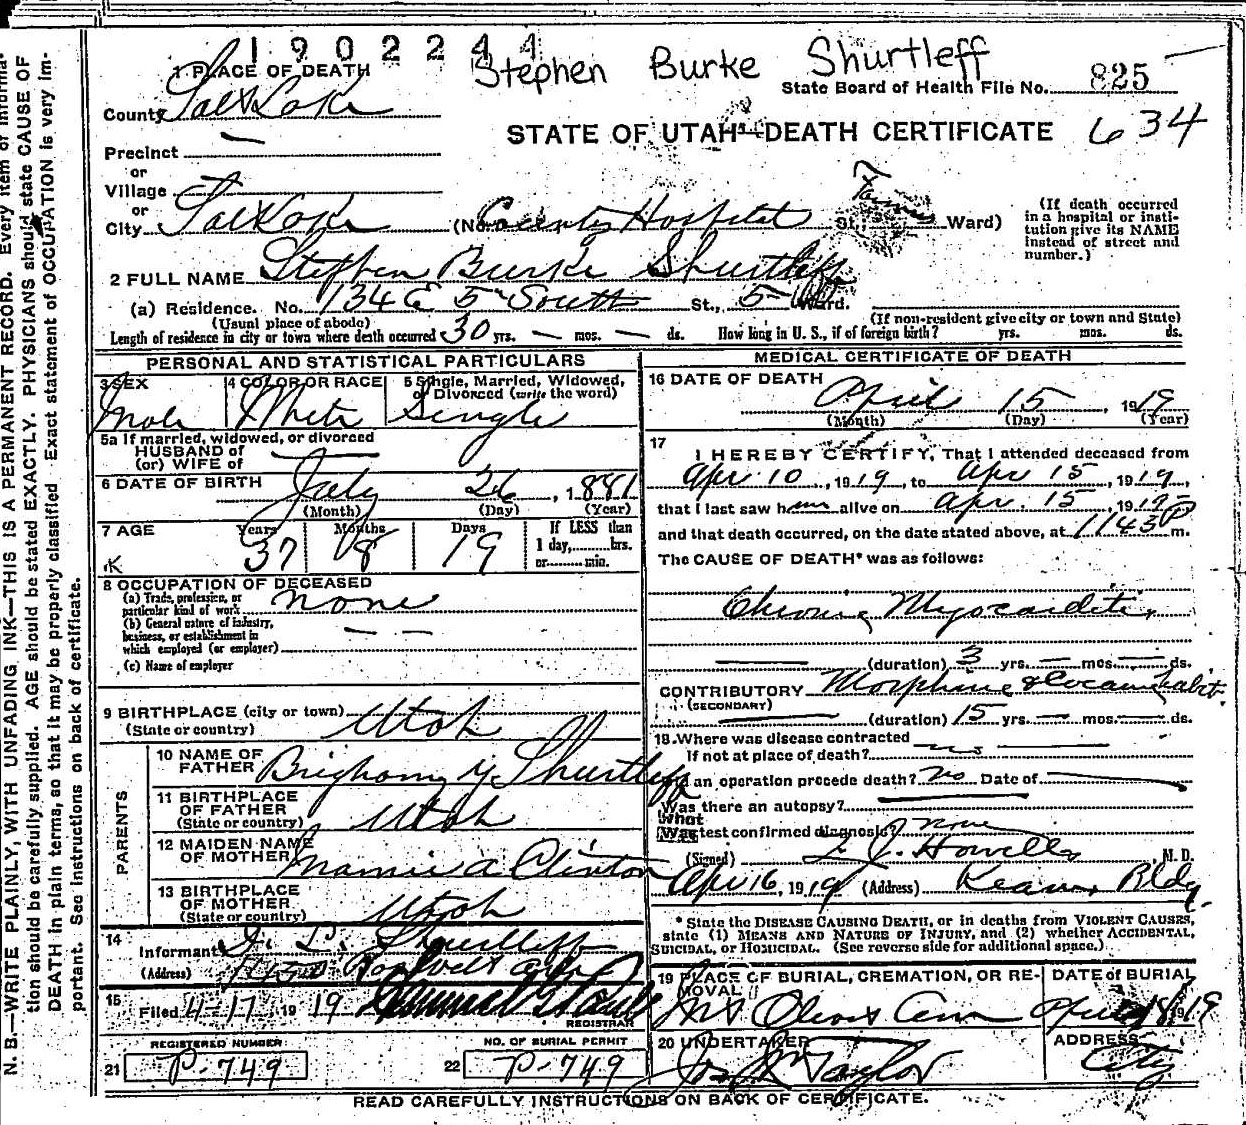 1902244
Stephen Burke Shurtleff
1 PLACE OF DEATH
State Board of Health File No. 825
County Salt Lake
STATE OF UTAH—DEATH CERTIFICATE 634
Precinct —
or
Village —
or
City Salt Lake (No. County Hospital St., Ward)
(If death occurred in a hospital or institution give its NAME instead of street and number.)
2 FULL NAME Stephen Burke Shurtleff
(a) Residence. No. 134 E 5 South St., 5 Ward.
(Usual place of abode) (If non-resident give city or town and State)
Length of residence in city or town where death occurred 30 yrs. — mos. — ds. How long in U. S., if of foreign birth? yrs. mos. ds.
PERSONAL AND STATISTICAL PARTICULARS
3 SEX 4 COLOR OR RACE 5 Single, Married, Widowed, or Divorced (write the word)
Male White Single
5a If married, widowed, or divorced
HUSBAND of
(or) WIFE of —
6 DATE OF BIRTH July 26, 1881
(Month) (Day) (Year)
7 AGE Years Months Days If LESS than
37 8 19 1 day, hrs.
or min.
K
8 OCCUPATION OF DECEASED
(a) Trade, profession, or
particular kind of work none
(b) General nature of industry,
business, or establishment in
which employed (or employer) — —
(c) Name of employer
9 BIRTHPLACE (city or town)
(State or country) Utah
PARENTS
10 NAME OF
FATHER Brigham Y. Shurtleff
11 BIRTHPLACE
OF FATHER
(State or country) Utah
12 MAIDEN NAME
OF MOTHER Mamie A Clinton
13 BIRTHPLACE
OF MOTHER
(State or country) Utah
14
Informant Shurtleff
(Address)
15
Filed 4-17 1919
REGISTRAR
REGISTERED NUMBER NO. OF BURIAL PERMIT
21 P-749 22 P-749
MEDICAL CERTIFICATE OF DEATH
16 DATE OF DEATH
April 15, 1919
(Month) (Day) (Year)
17
I HEREBY CERTIFY, That I attended deceased from
Apr 10, 1919, to Apr 15, 1919,
that I last saw him alive on Apr. 15 1919
and that death occurred, on the date stated above, at 1143 P m.
The CAUSE OF DEATH* was as follows:
Chronic Myocarditis
(duration) 3 yrs. — mos. — ds.
CONTRIBUTORY Morphine & Cocaine habit.
(SECONDARY)
(duration) 15 yrs. — mos. — ds.
18. Where was disease contracted
If not at place of death?
Did an operation precede death? No Date of —
Was there an autopsy?
What test confirmed diagnosis? none
(Signed) L. J. Howells, M. D.
Apr 16, 1919 (Address) Kearns Bldg.
* State the DISEASE CAUSING DEATH, or in deaths from VIOLENT CAUSES,
state (1) MEANS AND NATURE OF INJURY, and (2) whether ACCIDENTAL,
SUICIDAL, OR HOMICIDAL. (See reverse side for additional space.)
19 PLACE OF BURIAL, CREMATION, OR REMOVAL DATE of BURIAL
Mt Olivet Cem April 18 1919
20 UNDERTAKER ADDRESS
Taylor City
READ CAREFULLY INSTRUCTIONS ON BACK OF CERTIFICATE.
N. B.—WRITE PLAINLY, WITH UNFADING INK—THIS IS A PERMANENT RECORD. Every item of informa-
tion should be carefully supplied. AGE should be stated EXACTLY. PHYSICIANS should state CAUSE OF
DEATH in plain terms, so that it may be properly classified. Exact statement of OCCUPATION is very im-
portant. See instructions on back of certificate.